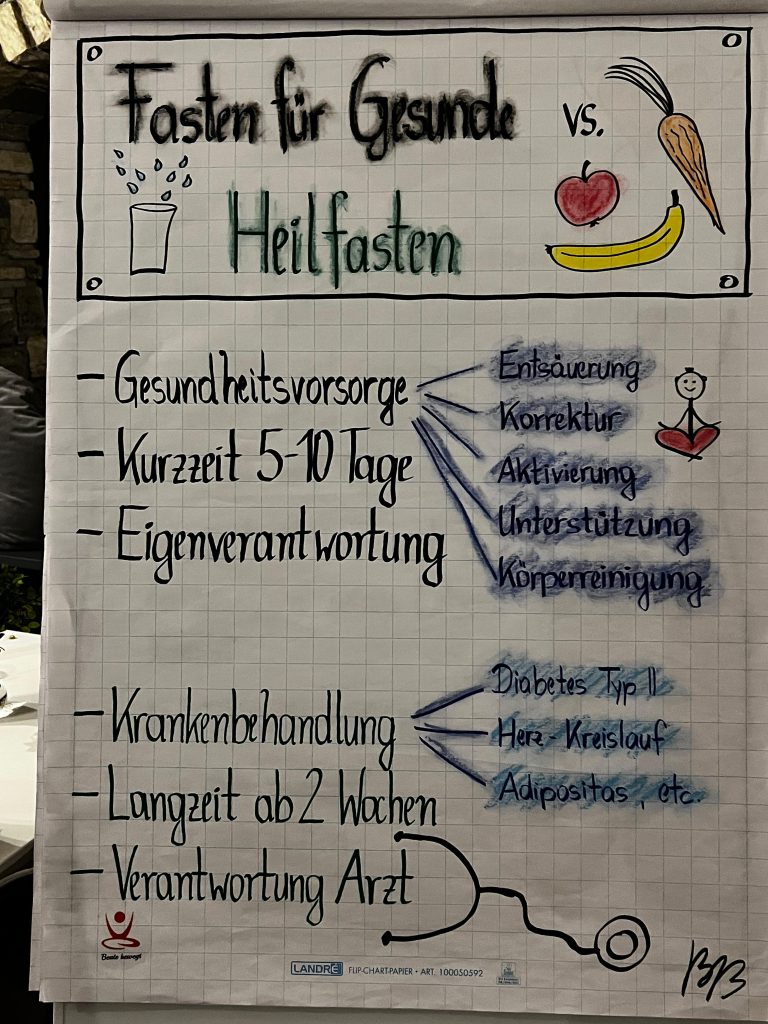 Fasten für Gesunde vs.
Heilfasten
- Gesundheitsvorsorge
Entsäuerung
Korrektur
Aktivierung
Unterstützung
Körperreinigung
- Kurzzeit 5-10 Tage
- Eigenverantwortung
- Krankenbehandlung
Diabetes Typ II
Herz-Kreislauf
Adipositas, etc.
- Langzeit ab 2 Wochen
- Verantwortung Arzt
Beate bewegt
LANDRÉ FLIP-CHART-PAPIER • ART. 100050592